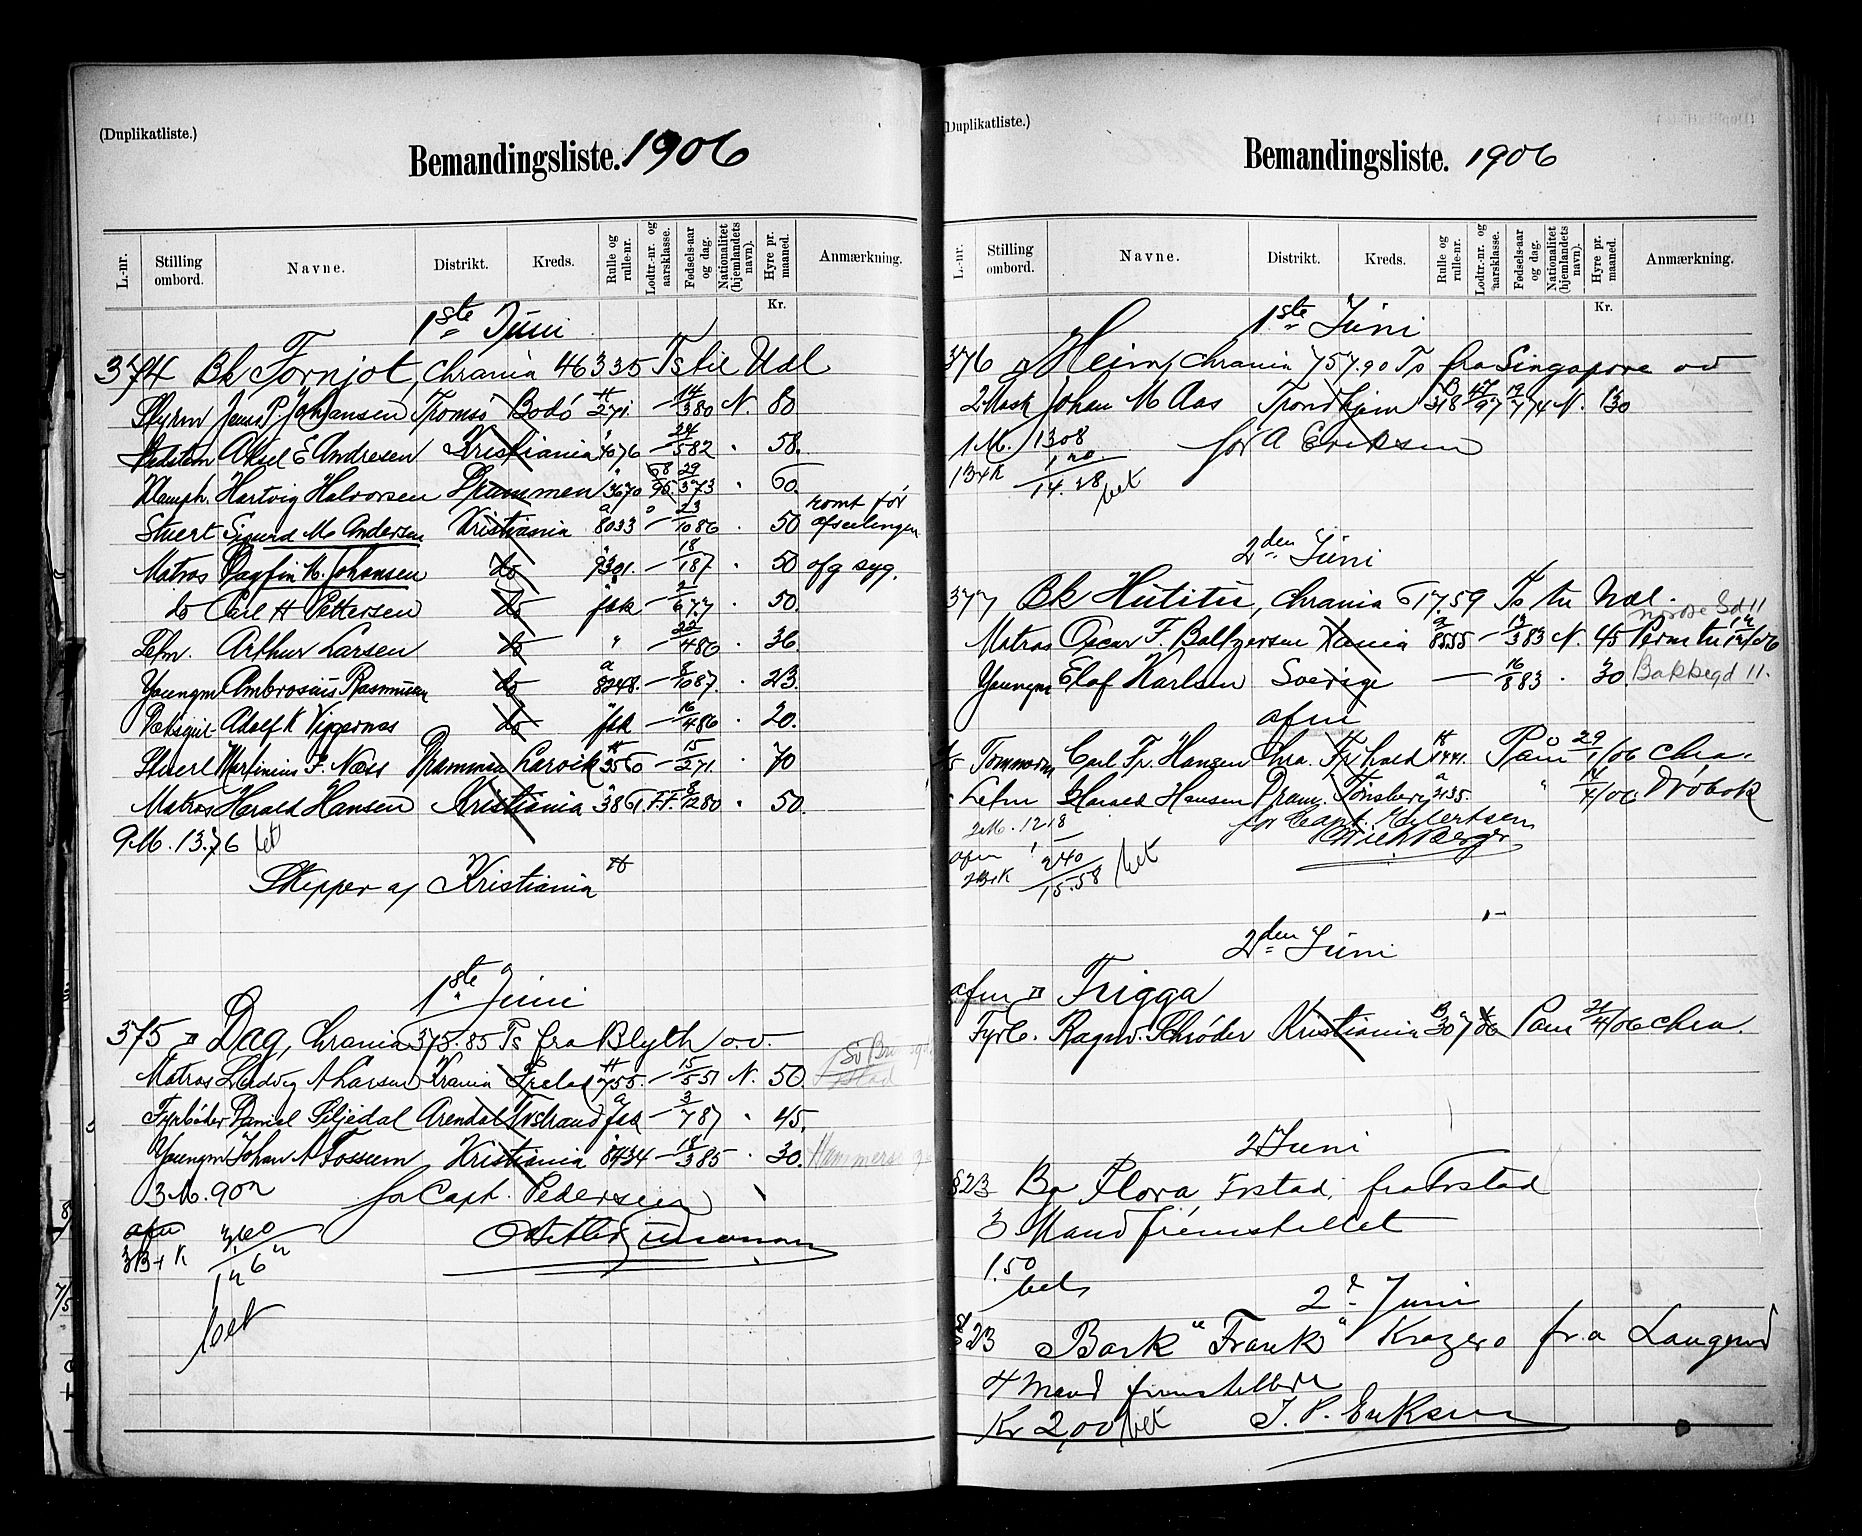 (Duplikatliste.)
Bemandingsliste. 1906
L.-nr. Stilling ombord. Navne. Distrikt. Kreds. Rulle og rulle-nr. Lodtr.-nr. og aarsklasse. Fødsels-aar og dag. Nationalitet (hjemlandets navn). Hyre pr. maaned. Anmærkning.
Kr.
1ste Juni
374 Bk Fornjot, Chrania 463 35 Ts til Udl
Styrm Jens P. Johansen Tromsö Bodö 271. — 14/3 80 N. 80
Axel E Andresen Kristiania 4076 24/5 82 " 58.
Hartvig Halvorsen Drammen 3670 68/95 29/3 73 " 60.
Stuert Sigurd M. Andersen Kristiania 8033 — 23/10 86 . 50 romt før afseelingen
Matros Dagfin M. Johansen do 9301. — 18/1 87 . 50 og syg.
do Carl H Pettersen do fsk — 2/6 77 . 50.
Letm. Arthur Larsen do " — 22/4 86 . 36.
Youngm Ambrosius Rasmusen do a 8248. — 8/10 87. . 23.
Adolf K Viggernæs do fsk — 16/4 86 . 20.
Stuert Martinius F. Næss Drammen Larvik 3560 — 15/2 71. . 70
Matros Harald Hansen Kristiania 3861. F.F. 3/12 80 . 50.
9 M. 13.76 bet
Skipper af Kristiania
1ste Juni
375 D Dag, Chrania 373.85 Ts fra Blyth o.v.
Matros Ludvig A Larsen Krania 755. — 15/5 51 N. 50.
Fyrbøder Daniel Siljedal Arendal fsk — 3/7 87 " 45.
Youngm Johan A Fossum Kristiania 8434 — 18/3 85 . 30.
3 M. 902 for Capt. Pedersen
afm 360
3B+K 126
bet
(Duplikatliste.)
Bemandingsliste. 1906
L.-nr. Stilling ombord. Navne. Distrikt. Kreds. Rulle og rulle-nr. Lodtr.-nr. og aarsklasse. Fødsels-aar og dag. Nationalitet (hjemlandets navn). Hyre pr. maaned. Anmærkning.
Kr.
1ste Juni
376 D Heim, Chrania 757.90 Ts fra Singapore ov
2 Mask Johan M Aas Trondhjem B 318 97 12/7 74 N. 130
1 M. 13.08 for A Eriksen
1B+K 1.20
14.28 bet
2den Juni
377 Bk Hutitu, Chrania 617.59 Ts til Udl.
Matros Oscar F. Baltzersen Xania a 8555 — 13/3 83 N. 45
Youngm Elof Karlsen Sverige — 16/8 83 . 30. Bakkegd 11.
afm
Tømmerm Carl Fr. Hansen Chra. Frhald 1441. Paam 29/1/06 Chra.
Letm Harald Hansen Dram. Tønsberg a 2135. " 14/4/06 Drøbak
2 M. 12.18 for Capt. Eilertsen
afm 1
2B+K 2.40
15.58 bet
2den Juni
afm D Frigga
Fyrb. Ragnv. Schröder Kristiania B 307 06 Paam 21/4/06 Chra.
2 Juni
§23 Bg Flora Frstad, fra Frstad
3 Mand fremstillet
1.50
bet
2d Juni
§23 Bark "Frank" Kragerø fra Langesund
4 mand fremstillede
Kr 2,00 bet J. P. Eriksen